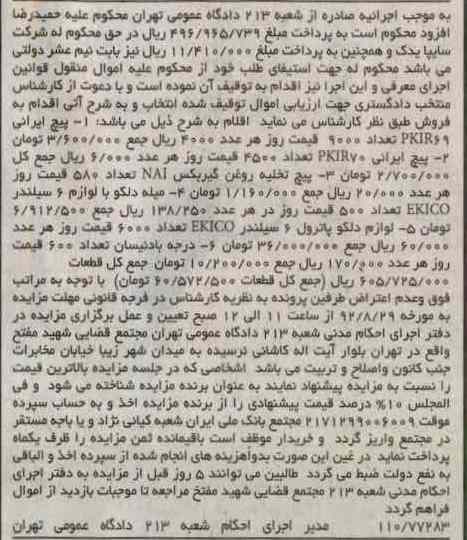 به موجب اجرائیه صادره از شعبه ۲۱۳ دادگاه عمومی تهران محکوم علیه حمیدرضا
افزود محکوم است به پرداخت مبلغ ۴۹۶/۹۶۵/۷۳۹ ریال در حق محکوم له شرکت
سایپا یدک و همچنین به پرداخت مبلغ ۱۱/۴۱۰/۰۰۰ ریال نیز بابت نیم عشر دولتی
می باشد محکوم له جهت استیفای طلب خود از محکوم علیه اموال منقول قوانین
اجرای معرفی و این اجرا نیز اقدام به توقیف آن نموده است و با دعوت از کارشناس
منتخب دادگستری جهت ارزیابی اموال توقیف شده انتخاب و به شرح آتی اقدام به
فروش طبق نظر کارشناس می نماید اقلام به شرح ذیل می باشد: ۱- پیچ ایرانی
PKIR۶۹ تعداد ۹۰۰۰ قیمت روز هر عدد ۴۰۰۰ ریال جمع ۳/۶۰۰/۰۰۰ تومان
۲- پیچ ایرانی PKIR۷۰ تعداد ۴۵۰۰ قیمت روز هر عدد ۶/۰۰۰ ریال جمع کل
۲/۷۰۰/۰۰۰ تومان ۳- پیچ تخلیه روغن گیربکس NAI تعداد ۵۸۰ قیمت روز
هر عدد ۲۰/۰۰۰ ریال جمع ۱/۱۶۰/۰۰۰ تومان ۴- میله دلکو با لوازم ۶ سیلندر
EKICO تعداد ۵۰۰ قیمت روز در هر عدد ۱۳۸/۲۵۰ ریال جمع ۶/۹۱۲/۵۰۰
تومان ۵- لوازم دلکو پاترول ۶ سیلندر EKICO تعداد ۶۰۰۰ قیمت روز هر عدد
۶۰/۰۰۰ ریال جمع ۳۶/۰۰۰/۰۰۰ تومان ۶- درجه بادنیسان تعداد ۶۰۰ قیمت
روز هر عدد ۱۷۰/۰۰۰ ریال جمع ۱۰/۲۰۰/۰۰۰ تومان جمع کل قطعات
۶۰۵/۷۲۵/۰۰۰ ریال (جمع کل قطعات ۶۰/۵۷۲/۵۰۰ تومان) با توجه به مراتب
فوق وعدم اعتراض طرفین پرونده به نظریه کارشناس در فرجه قانونی مهلت مزایده
به مورخه ۹۲/۸/۲۹ از ساعت ۱۱ الی ۱۲ صبح تعیین و عمل برگزاری مزایده در
دفتر اجرای احکام مدنی شعبه ۲۱۳ دادگاه عمومی تهران مجتمع قضایی شهید مفتح
واقع در تهران بلوار آیت اله کاشانی نرسیده به میدان شهر زیبا خیابان مخابرات
جنب کانون واصلاح و تربیت می باشد اشخاصی که در جلسه مزایده بالاترین قیمت
را نسبت به مزایده پیشنهاد نمایند به عنوان برنده مزایده شناخته می شود و فی
المجلس ۱۰% درصد قیمت پیشنهادی را از برنده مزایده اخذ و به حساب سپرده
موقت ۲۱۷۱۲۹۹۰۰۶۰۰۹ مجتمع بانک ملی ایران شعبه کیانی نژاد و یا باجه مستقر
در مجتمع واریز گردد و خریدار موظف است باقیمانده ثمن مزایده را ظرف یکماه
پرداخت نماید در غین این صورت بدواهزینه های انجام شده از سپرده اخذ و الباقی
به نفع دولت ضبط می گردد طالبین می توانند ۵ روز قبل از مزایده به دفتر اجرای
احکام مدنی شعبه ۲۱۳ مجتمع قضایی شهید مفتح مراجعه تا موجبات بازدید از اموال
فراهم گردد
۱۱۰/۷۷۲۸۳ مدیر اجرای احکام شعبه ۲۱۳ دادگاه عمومی تهران